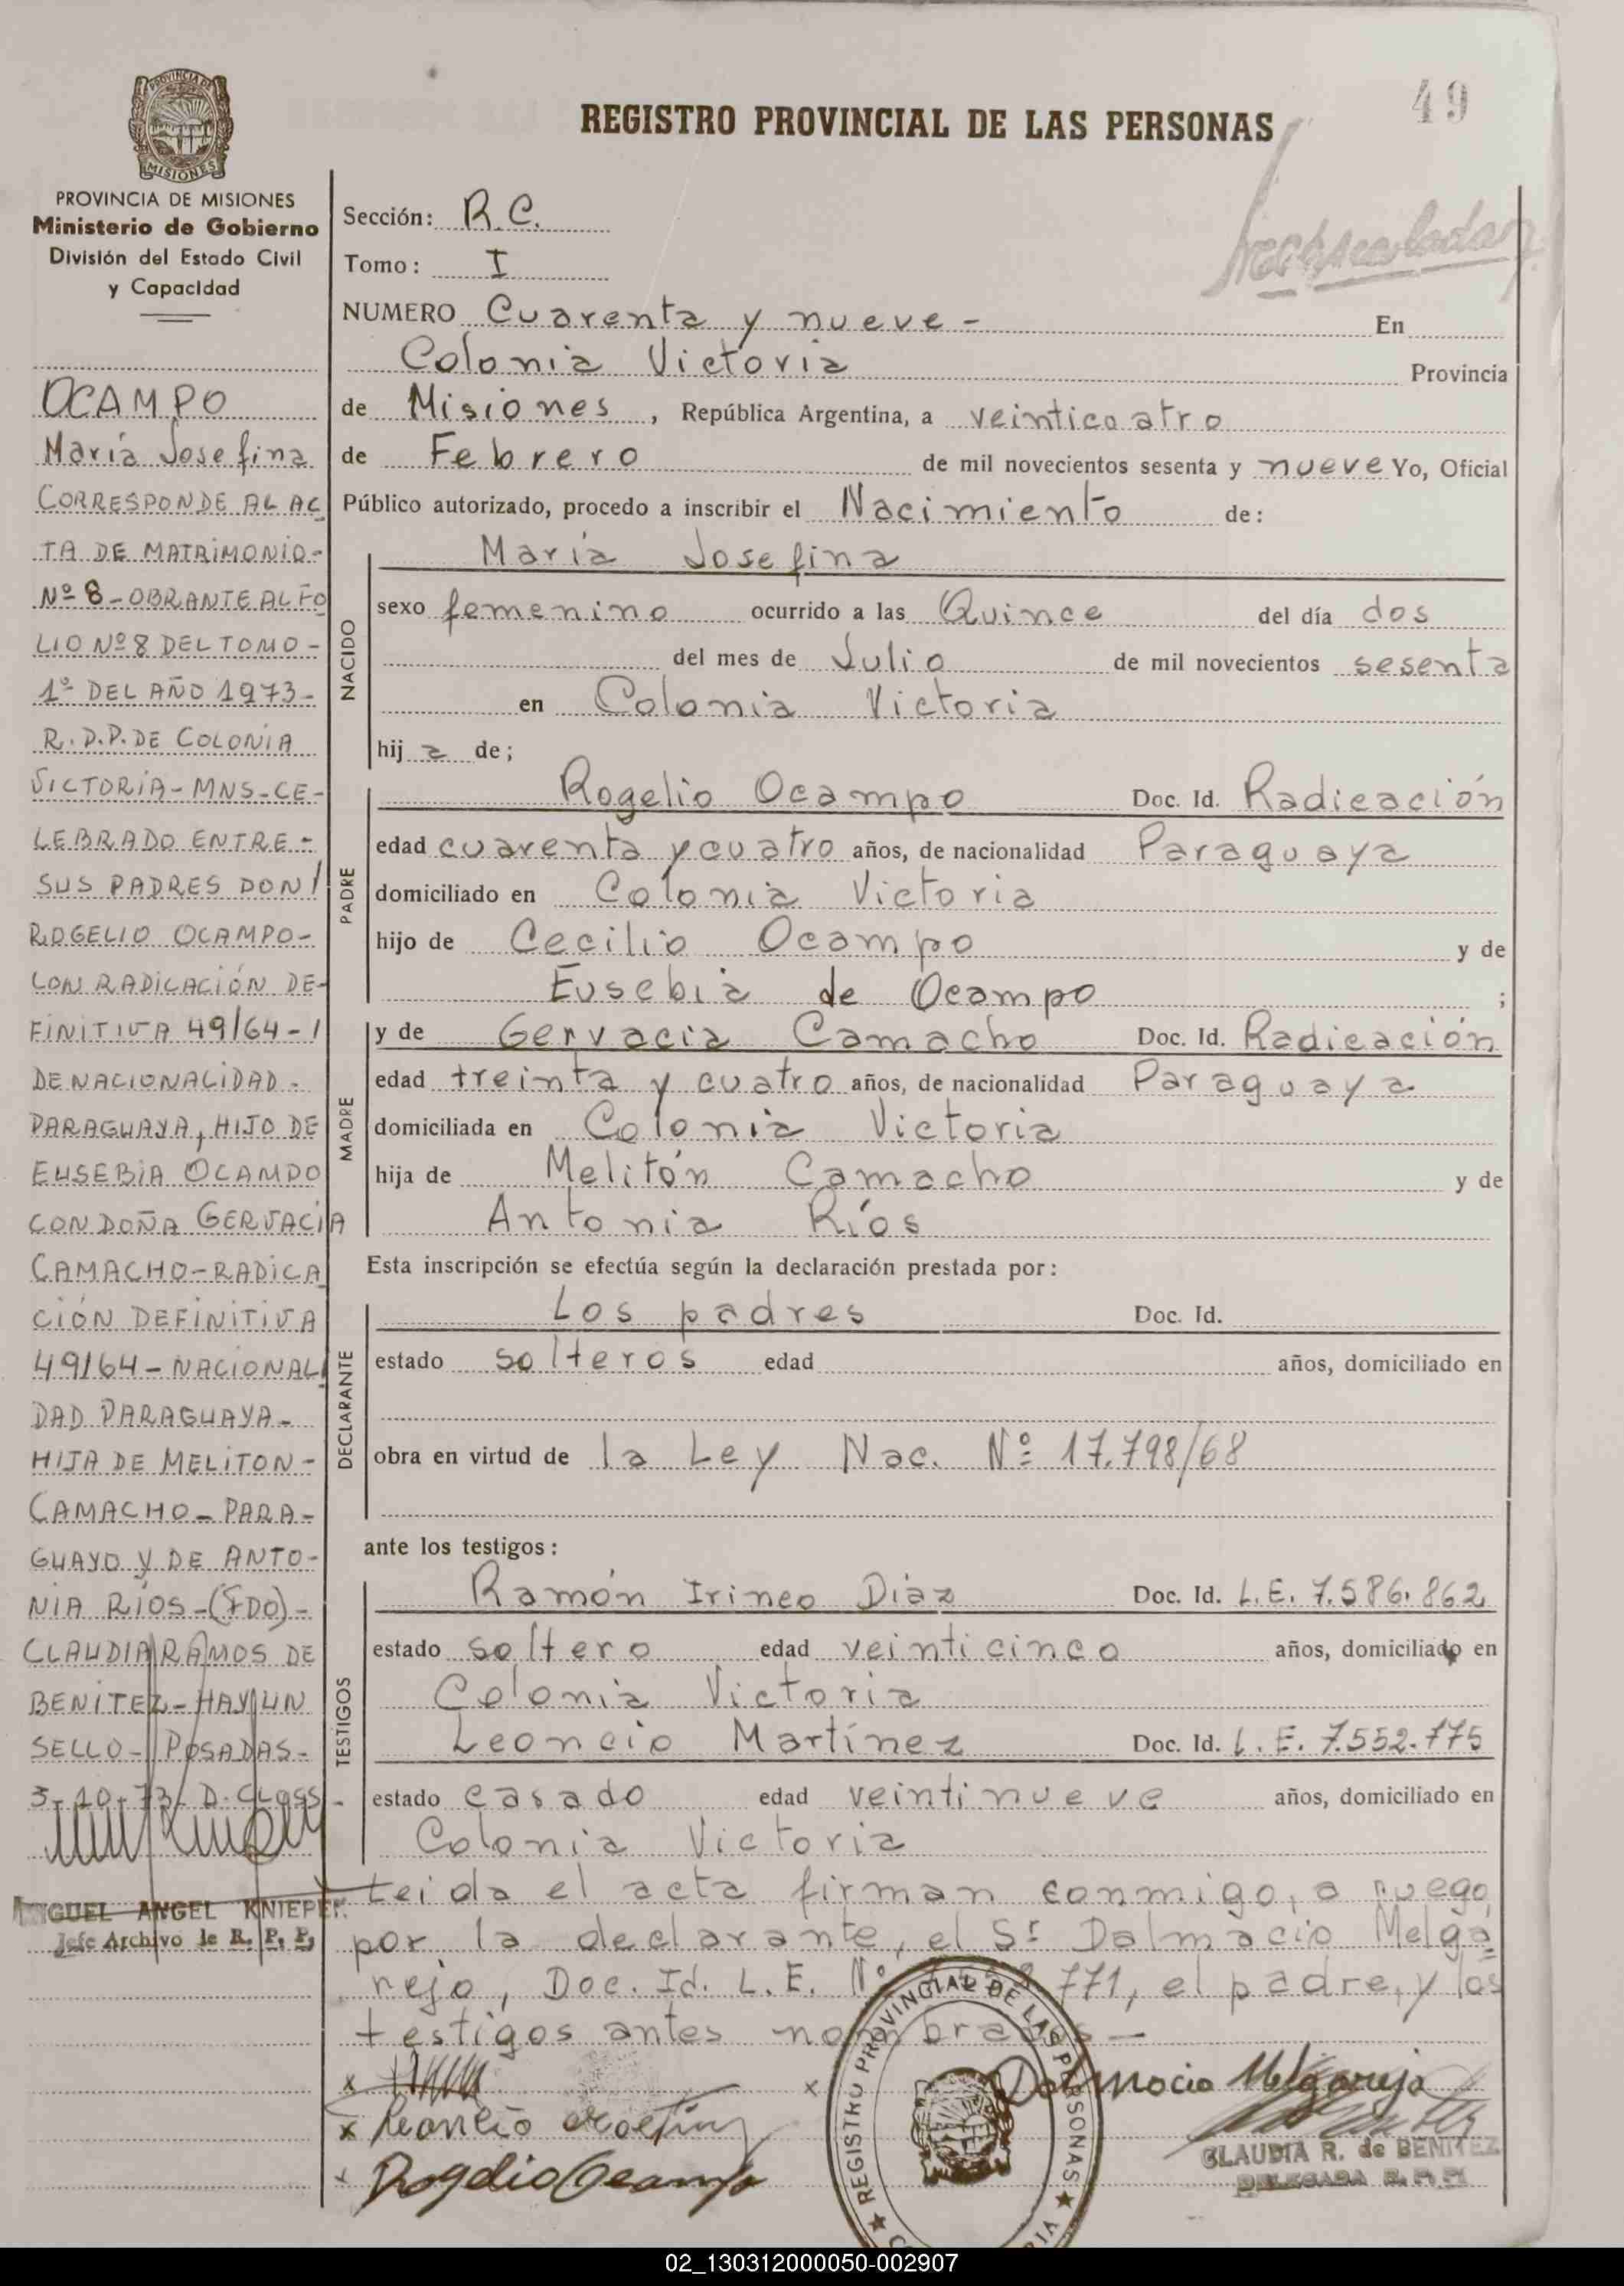 49
REGISTRO PROVINCIAL DE LAS PERSONAS
PROVINCIA DE MISIONES
PROVINCIA DE MISIONES
Ministerio de Gobierno
División del Estado Civil
y Capacidad
OCAMPO
María Josefina
CORRESPONDE AL AC
TA DE MATRIMONIO-
Nº 8-OBRANTE AL FO
LIO Nº 8 DEL TOMO-
1º DEL AÑO 1973-
R.D.P. DE COLONIA
VICTORIA-MNS-CE-
LEBRADO ENTRE-
SUS PADRES DON/
ROGELIO OCAMPO-
CON RADICACIÓN DE-
FINITIVA 49/64-/
DE NACIONALIDAD-
PARAGUAYA, HIJO DE
EUSEBIA OCAMPO
CON DOÑA GERVACIA
CAMACHO-RADICA
CIÓN DEFINITIVA
49/64-NACIONALI
DAD PARAGUAYA-
HIJA DE MELITON-
CAMACHO-PARA-
GUAYO Y DE ANTO-
NIA RÍOS-(FDO)-
CLAUDIA RAMOS DE
BENITEZ-HAY UN
SELLO-POSADAS-
3-10-73-D. CLASS-
MIGUEL ANGEL KNIEPER
Jefe Archivo de R. P. P.
Sección: R.C.
Tomo: I
NUMERO Cuarenta y nueve- En
Colonia Victoria Provincia
de Misiones, República Argentina, a veinticoatro
de Febrero de mil novecientos sesenta y nueve Yo, Oficial
Público autorizado, procedo a inscribir el Nacimiento de:
NACIDO
María Josefina
sexo femenino ocurrido a las Quince del día dos
del mes de Julio de mil novecientos sesenta
en Colonia Victoria
hija de;
PADRE
Rogelio Ocampo Doc. Id. Radicación
edad cuarenta y cuatro años, de nacionalidad Paraguaya
domiciliado en Colonia Victoria
hijo de Cecilio Ocampo y de
Eusebia de Ocampo ;
MADRE
y de Gervacia Camacho Doc. Id. Radicación
edad treinta y cuatro años, de nacionalidad Paraguaya
domiciliada en Colonia Victoria
hija de Melitón Camacho y de
Antonia Ríos
Esta inscripción se efectúa según la declaración prestada por:
DECLARANTE
Los padres Doc. Id.
estado solteros edad años, domiciliado en
obra en virtud de la Ley Nac. Nº 17.798/68
ante los testigos:
TESTIGOS
Ramón Irineo Díaz Doc. Id. L.E. 7.586.862
estado soltero edad veinticinco años, domiciliado en
Colonia Victoria
Leoncio Martínez Doc. Id. L.E. 7.552.775
estado casado edad veintinueve años, domiciliado en
Colonia Victoria
Leida el acta firman conmigo, a ruego
por la declarante, el Sr Dalmacio Melga
rejo, Doc. Id. L. E. Nº 771, el padre, y los
testigos antes nombrados-
x x Dalmacio Melgarejo
x Leoncio Martinez
x Rogelio Ocampo
REGISTRO PROVINCIAL DE LAS PERSONAS
CLAUDIA R. de BENITEZ
DELEGADA R. P. P.
02_130312000050-002907